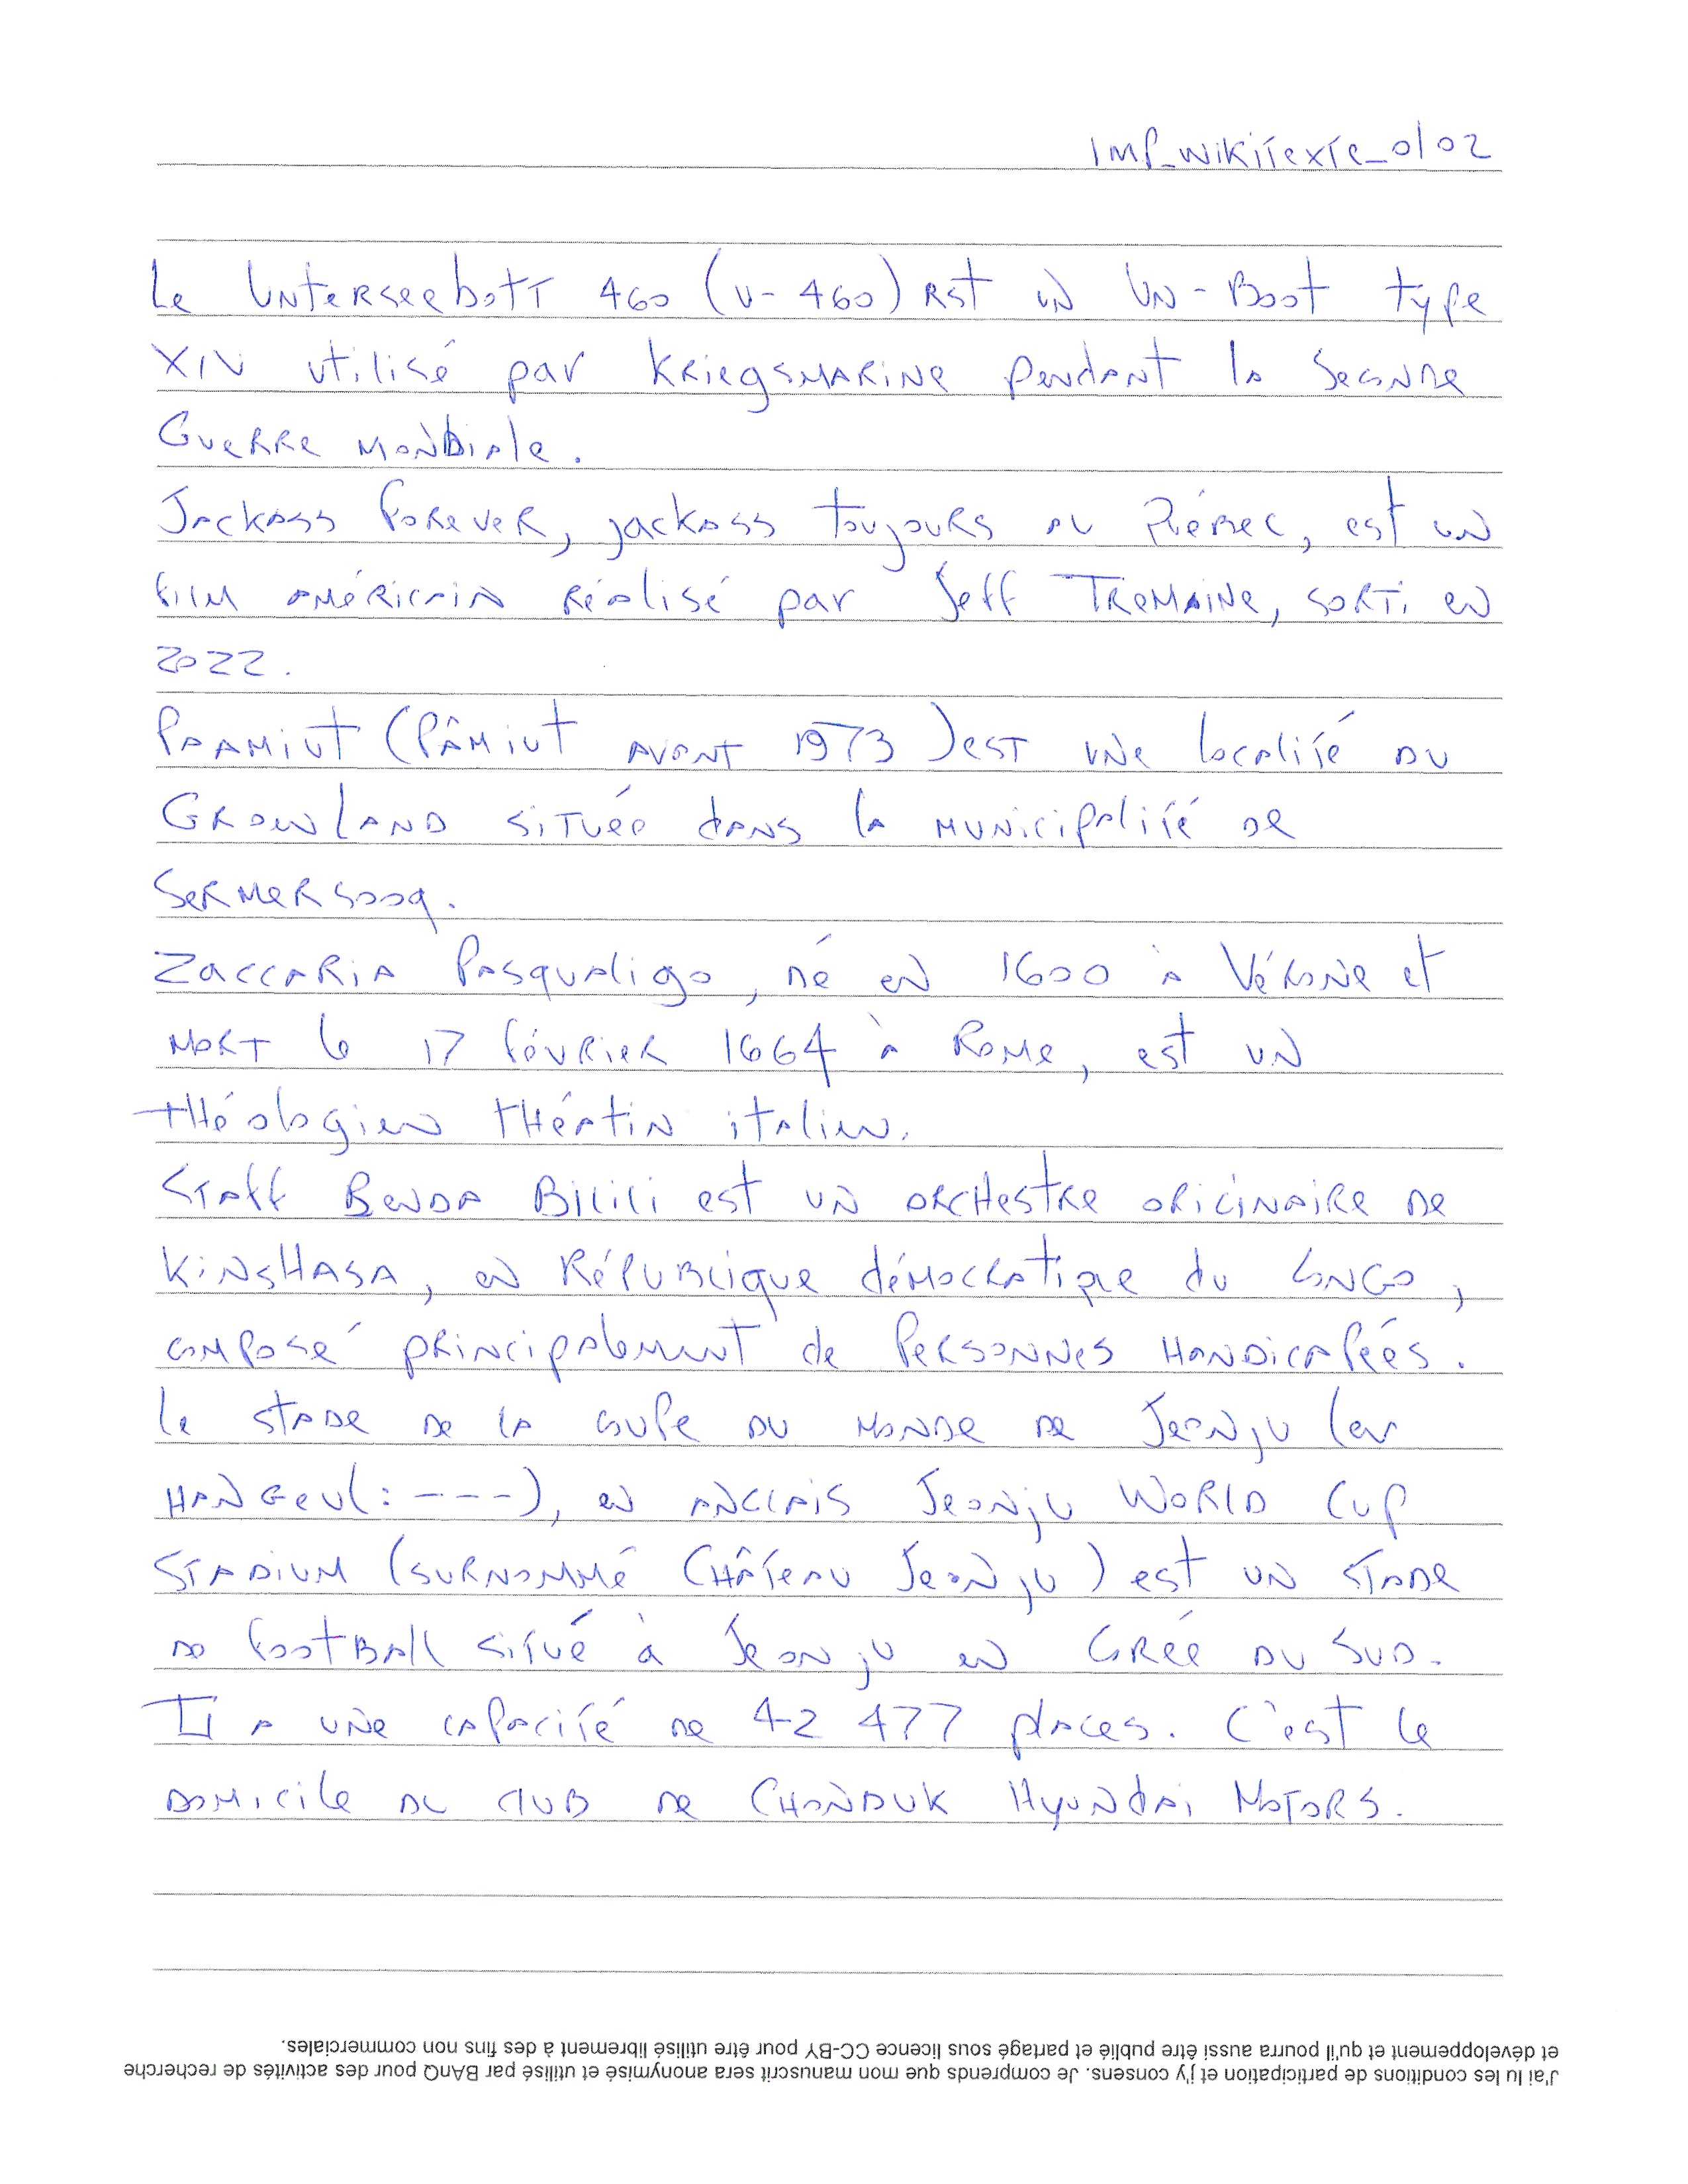 Imp_wikitexte_0102
Le Unterseebott 460 (U-460) est un Un-Boot type
XIV utilisé par Kriegsmarine pendant la Seconde
Guerre Mondiale.
Jackass Forever, jackass toujours au Québec, est un
film américain réalisé par Jeff Tremaine, sorti en
2022.
Paamiut (Pâmiut avant 1973) est une localité du
Growland située dans la municipalité de
Sermersooq.
Zaccaria Pasqualigo, né en 1600 à Vérone et
mort le 17 février 1664 à Rome, est un
théologien théatin italien.
Staff Benda Bilili est un orchestre originaire de
Kinshasa, en République démocratique du Congo,
composé principalement de personnes handicapées.
Le stade de la coupe du monde de Jeonju (en
hangeul : ---), en anglais Jeonju World Cup
Stadium (surnommé Château Jeonju) est un stade
de football situé à Jeonju en Corée du Sud.
Il a une capacité de 42 477 places. C'est le
domicile du club de Chonduk Hyundai Motors.
J'ai lu les conditions de participation et j'y consens. Je comprends que mon manuscrit sera anonymisé et utilisé par BAnQ pour des activités de recherche
et développement et qu'il pourra aussi être publié et partagé sous licence CC-BY pour être utilisé librement à des fins non commerciales.